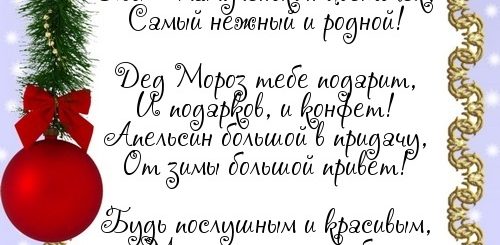 Самый нежный и родной!
Дед Мороз тебе подарит,
И подарков, и конфет!
Апельсин большой в придачу,
От зимы большой привет!
Будь послушным и красивым,